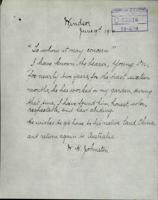 Windsor
June 9th
"To whom it may concern"
I have known the bearer, Young
for nearly two years, for the last
months, he has worked in my garden, during
that time, I have found him, honest, sober,
respectable, and law abiding
He wishes to go home to his native land, China,
and return again to Australia
W. H. Johnston